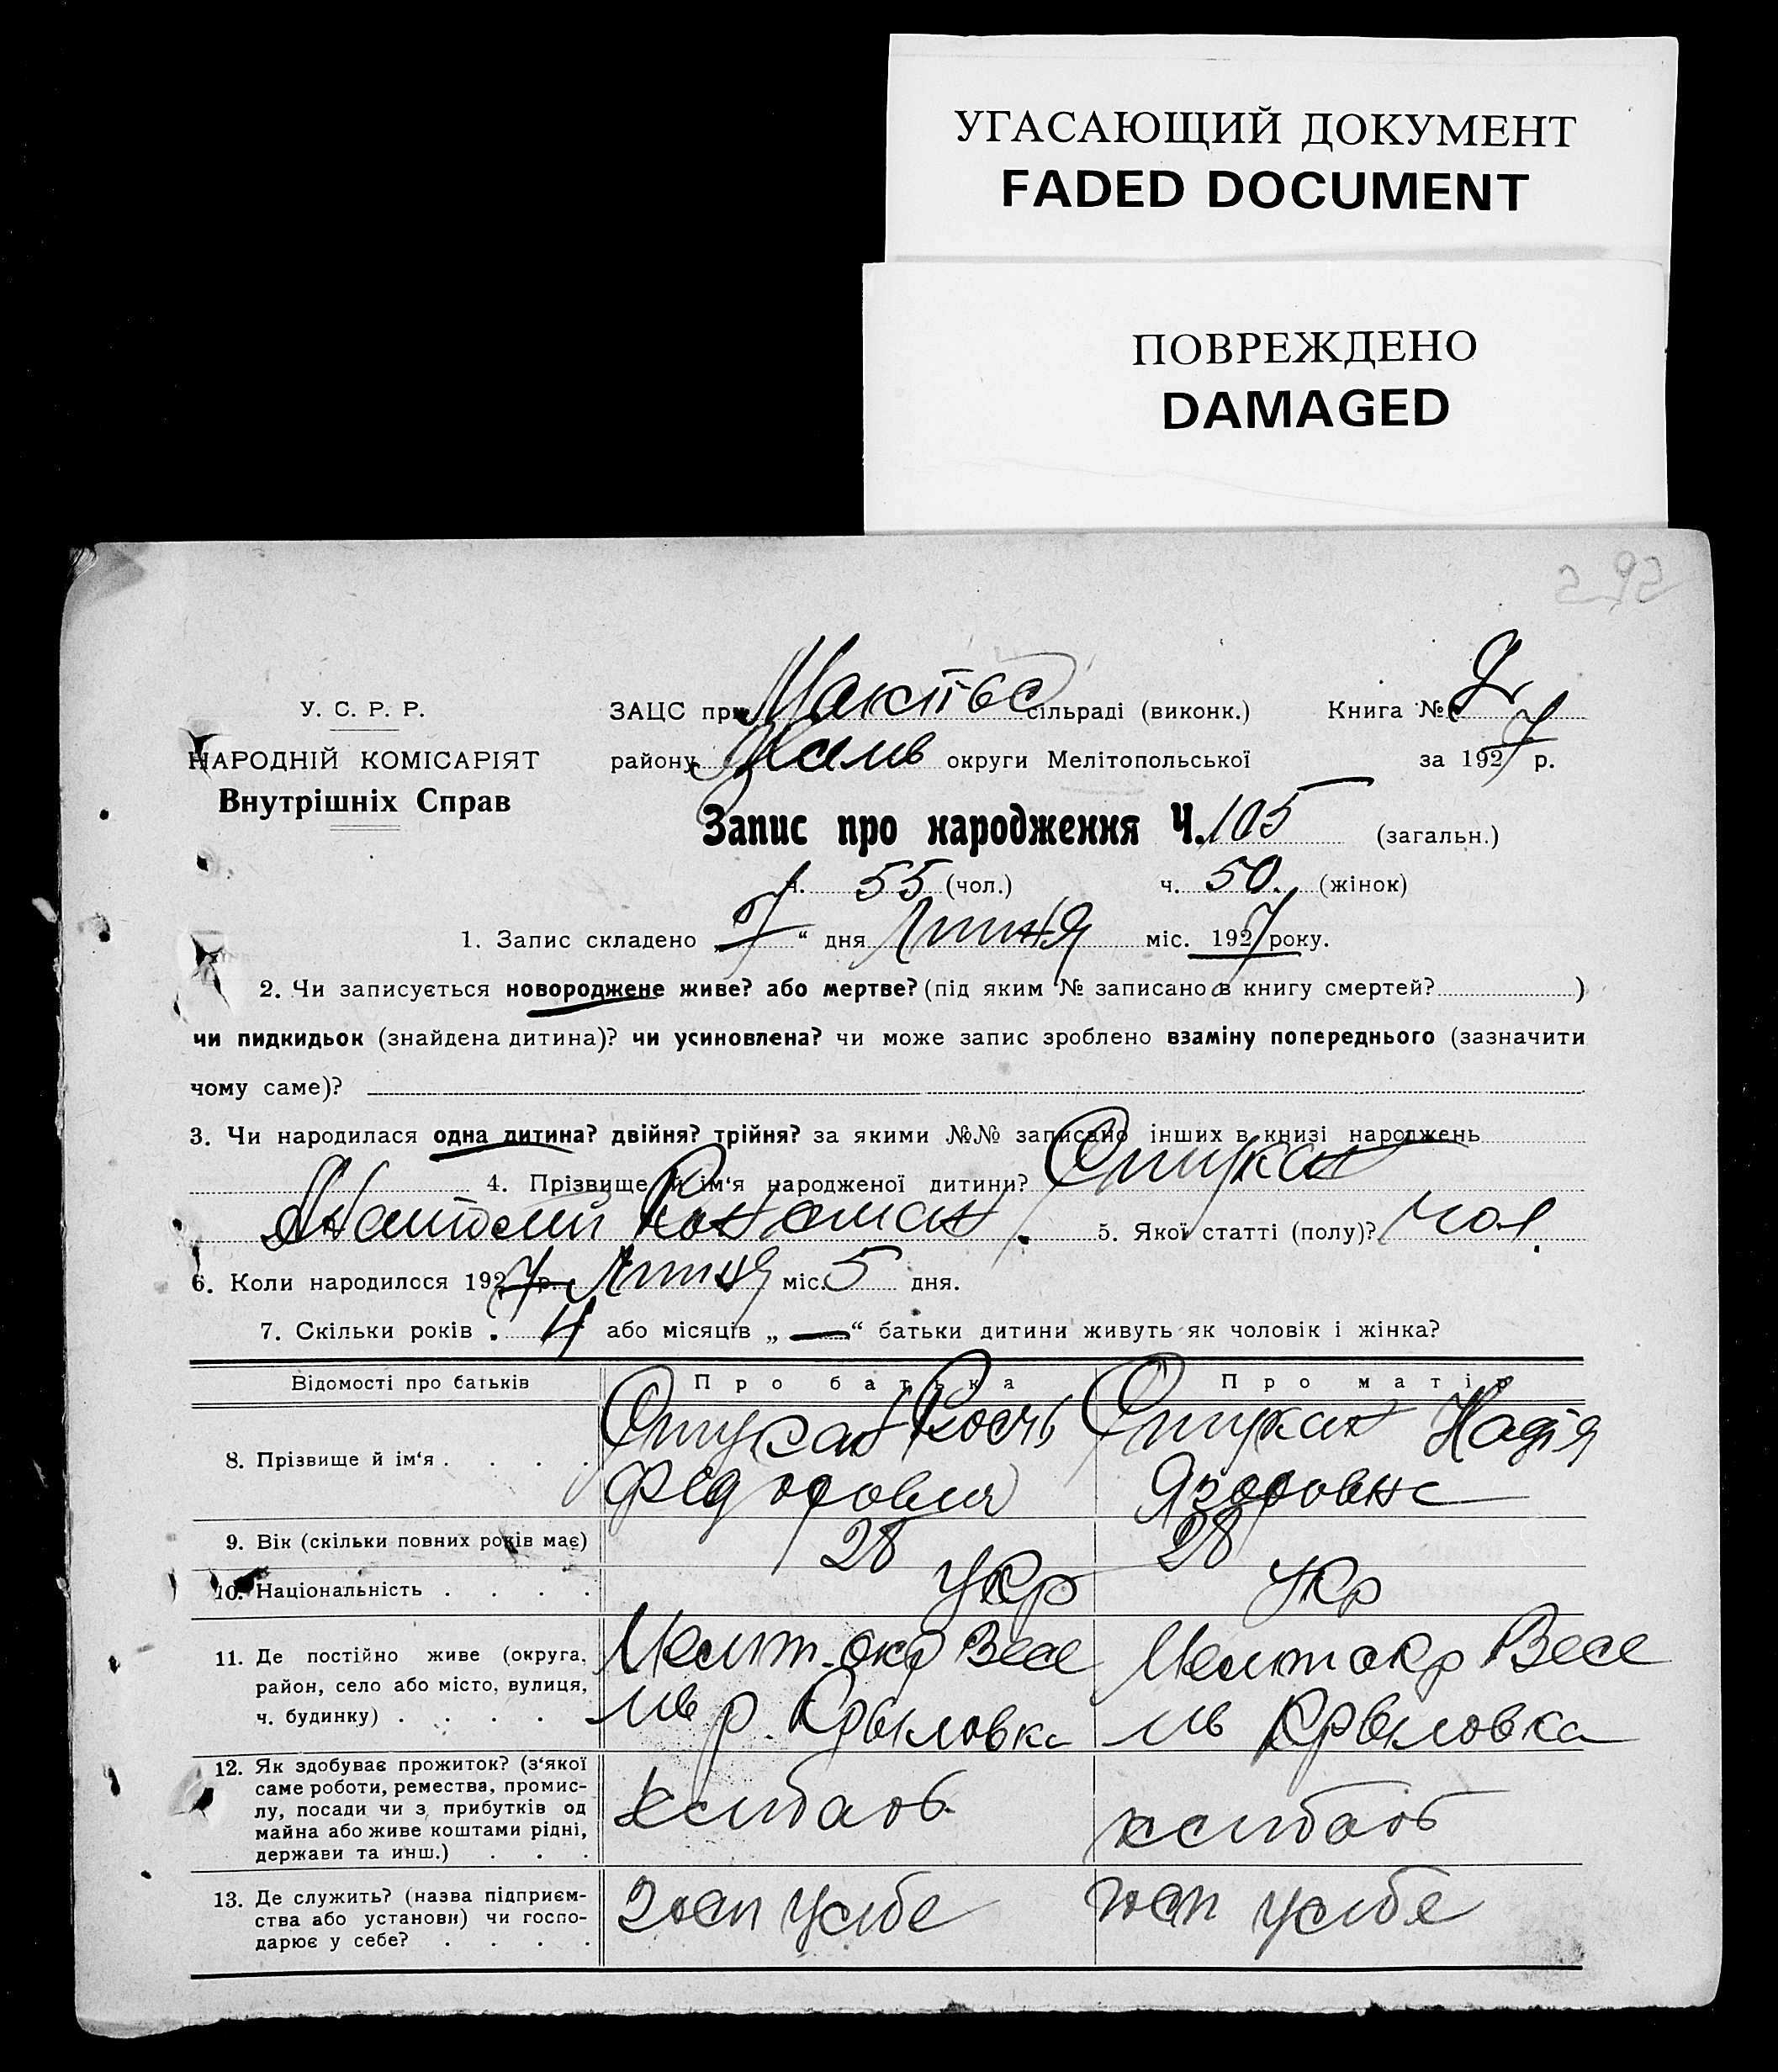 УГАСАЮЩИЙ ДОКУМЕНТ
FADED DOCUMENT
ПОВРЕЖДЕНО
DAMAGED
292
У. С. Р. Р.
НАРОДНІЙ КОМІСАРІЯТ
Внутрішніх Справ
ЗАЦС при сільраді (виконк.) Книга №
району округи Мелітопольської за 1927 р.
Запис про народження Ч. 105 (загальн.)
ч. 55 (чол.) ч. 50. (жінок)
1. Запис складено „7“ дня Липня міс. 1927 року.
2. Чи записується новороджене живе? або мертве? (під яким № записано в книгу смертей? )
чи пидкидьок (знайдена дитина)? чи усиновлена? чи може запис зроблено взаміну попереднього (зазначити
чому саме)?
3. Чи народилася одна дитина? двійня? трійня? за якими №№ записано інших в книзі народжень
4. Прізвище й ім‘я народженої дитини?
5. Якої статті (полу)? чол.
6. Коли народилося 1927 р. Липня міс. 5 дня.
7. Скільки років 4 або місяців „ — “ батьки дитини живуть як чоловік і жінка?
Відомості про батьків Про батька Про матір
8. Прізвище й ім‘я Надія
9. Вік (скільки повних років має) 28 28
10. Національність Укр Укр
11. Де постійно живе (округа, Мелит. окр Весе Мелит окр Весе
район, село або місто, вулиця, лів р. Крыловка лів Крыловка
ч. будинку)
12. Як здобуває прожиток? (з‘якої
саме роботи, ремества, промис-
лу, посади чи з прибутків од хлибороб хлибороб
майна або живе коштами рідні,
держави та инш.)
13. Де служить? (назва підприєм-
ства або установи) чи госпо- госп у себе госп у себе
дарює у себе?